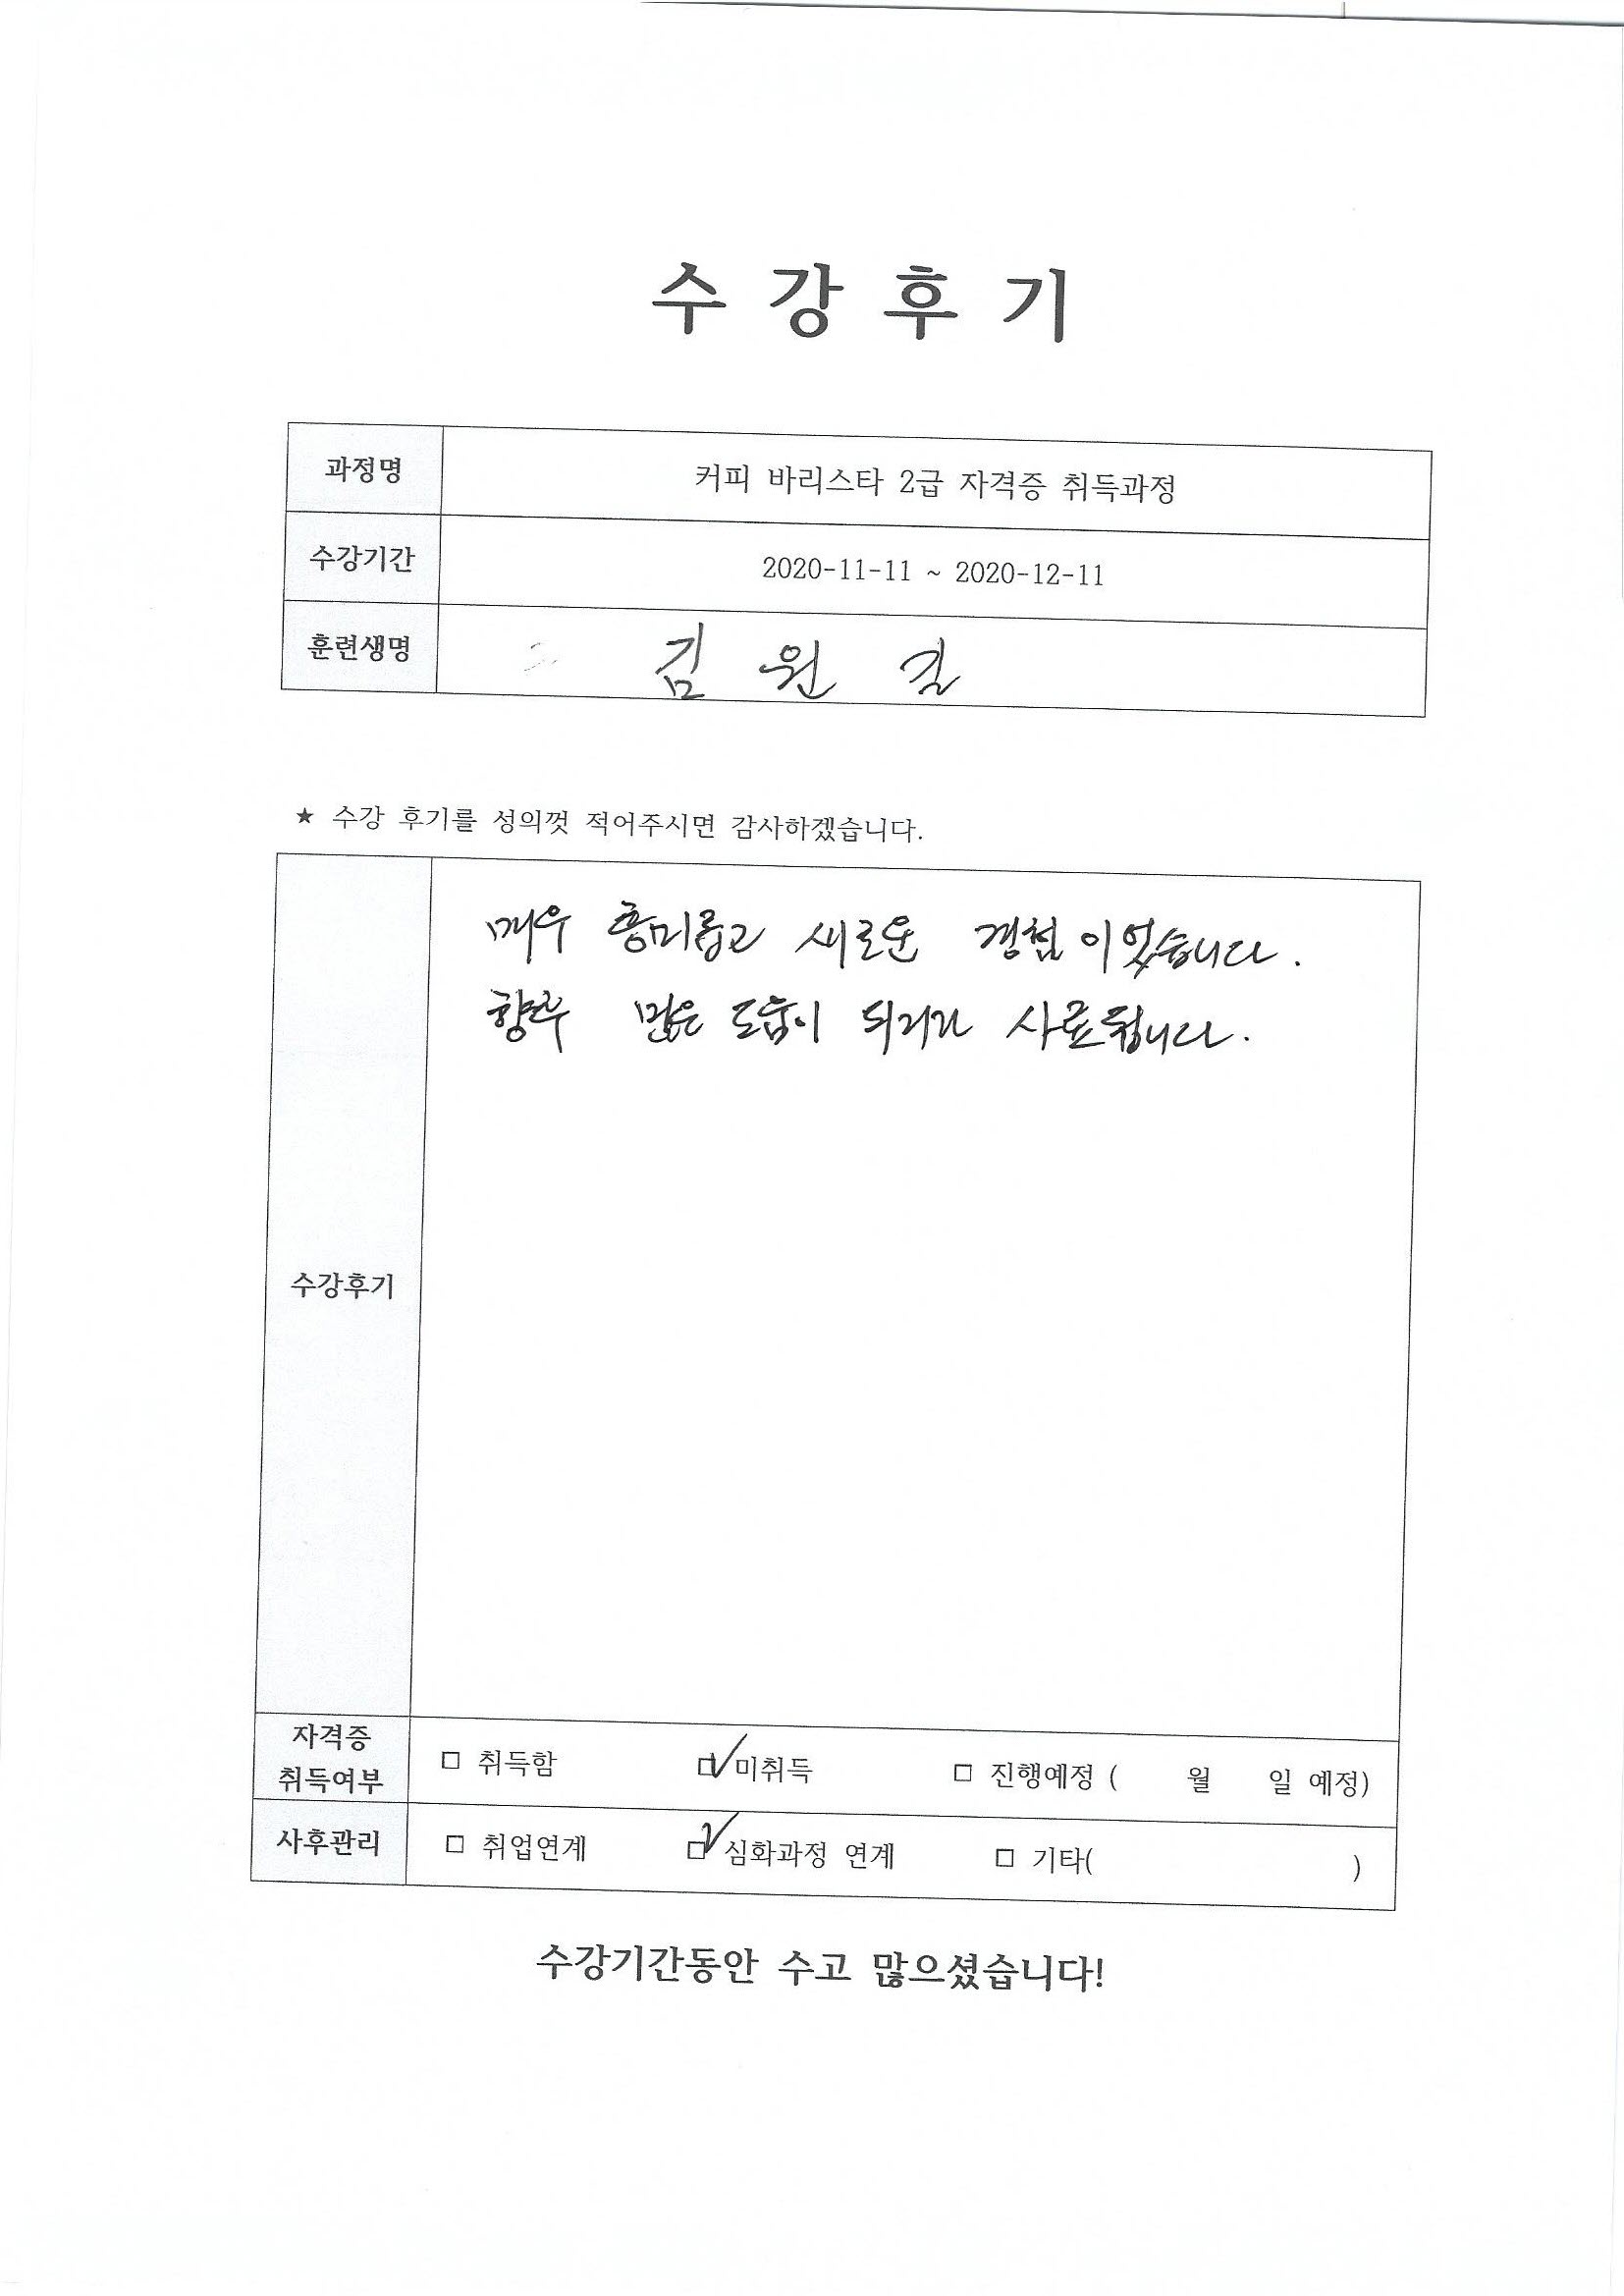 수 강 후 기
과정명 커피 바리스타 2급 자격증 취득과정
수강기간 2020-11-11 ~ 2020-12-11
훈련생명 김 원 길
★ 수강 후기를 성의껏 적어주시면 감사하겠습니다.
매우 흥미롭고 새로운 경험이었습니다.
향후 많은 도움이 되리라 사료됩니다.
수강후기
자격증
취득여부 □ 취득함 ☑ 미취득 □ 진행예정 ( 월 일 예정)
사후관리 □ 취업연계 ☑ 심화과정 연계 □ 기타( )
수강기간동안 수고 많으셨습니다!